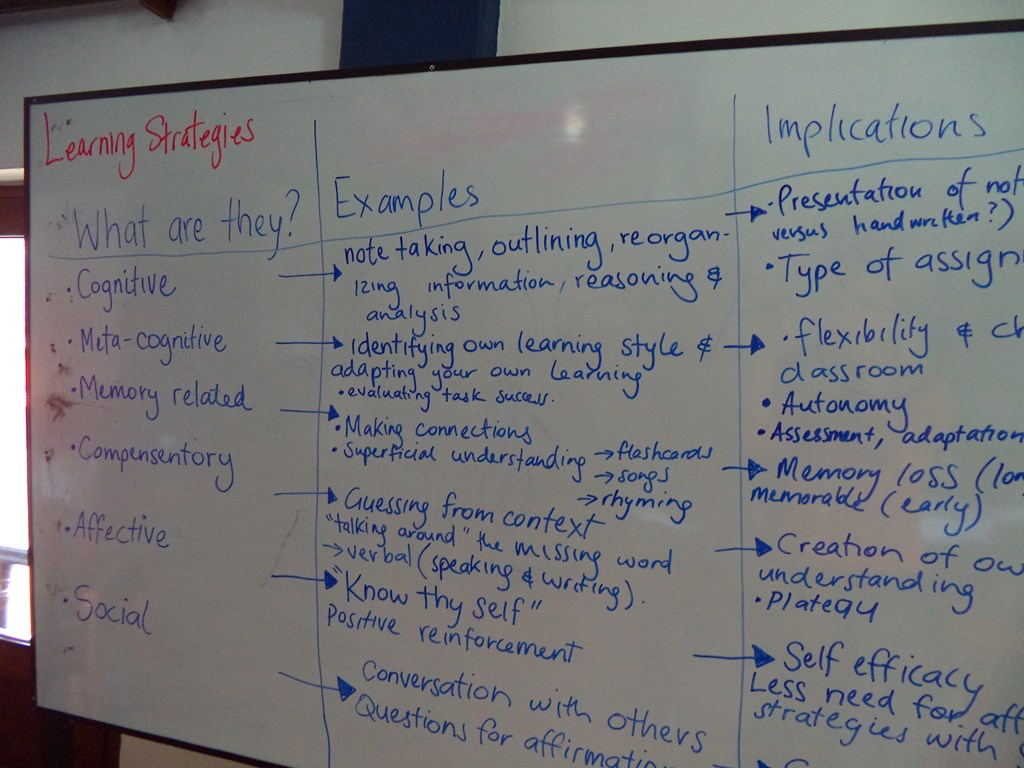 Learning Strategies
What are they?
· Cognitive
· Meta-cognitive
· Memory related
· Compensentory
· Affective
· Social
Examples
note taking, outlining, reorgan-
izing information, reasoning &
analysis
Identifying own learning style &
adapting your own learning
· evaluating task success.
· Making connections
· Superficial understanding → flashcards
→ songs
→ rhyming
Guessing from context
"talking around" the missing word
→ verbal (speaking & writing).
"Know thy self"
Positive reinforcement
Conversation with others
Questions for
Implications
· Presentation of
versus handwritten?)
· Type of
· flexibility &
classroom
· Autonomy
· Assessment, adaptation
Memory loss
memorable (early)
Creation of
understanding
· Plateau
Self efficacy
Less need for
strategies with